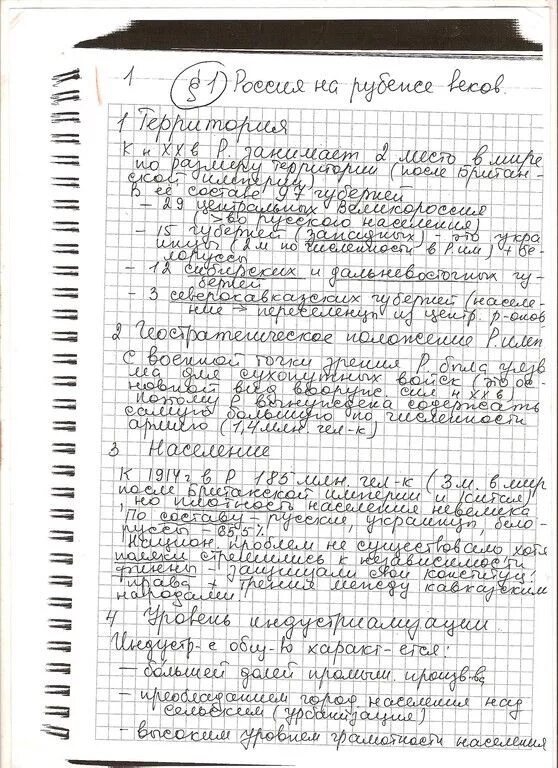 1 §1 Россия на рубеже веков.
1 Территория
К н XX в Р. занимает 2 место в мире
по размеру территории (после Британ-
ской империи)
В её составе 97 губерней
– 29 центральных Великороссия
(>во русского населения)
– 15 губерней (западных) – это укра
инцы (2 м по численности в Р. им) + бе-
лоруссы
– 12 сибирских и дальневосточных гу-
берней
– 3 северокавказских губерней (населе-
ние → переселенцы из центр. р-онов
2 Геостратегическое положение Р. имп
С военной точки зрения Р. была уязв
ма для сухопутных войск (это ос-
новной вид вооруж. сил н XX в)
поэтому Р. вынуждена содержать
самую большую по численности
армию (1,4 млн. чел-к)
3 Население
К 1914 г. в Р 185 млн. чел-к (3 м. в мир
после Британской империи и Китая)
, но плотность населения невелика
По составу – русские, украинцы, бело-
руссы – 65,5%
Национ. проблем не существовало хотя
поляки стремились к независимости
финны – защищали свои конституц.
права + трения между кавказским
народами
4 Уровень индустриализации
Индустр-е общ-во характ-ется:
– большей долей промыш. произв-ва
– преобладанием город населения над
сельским (урбанизация)
– высоким уровнем грамотности населения